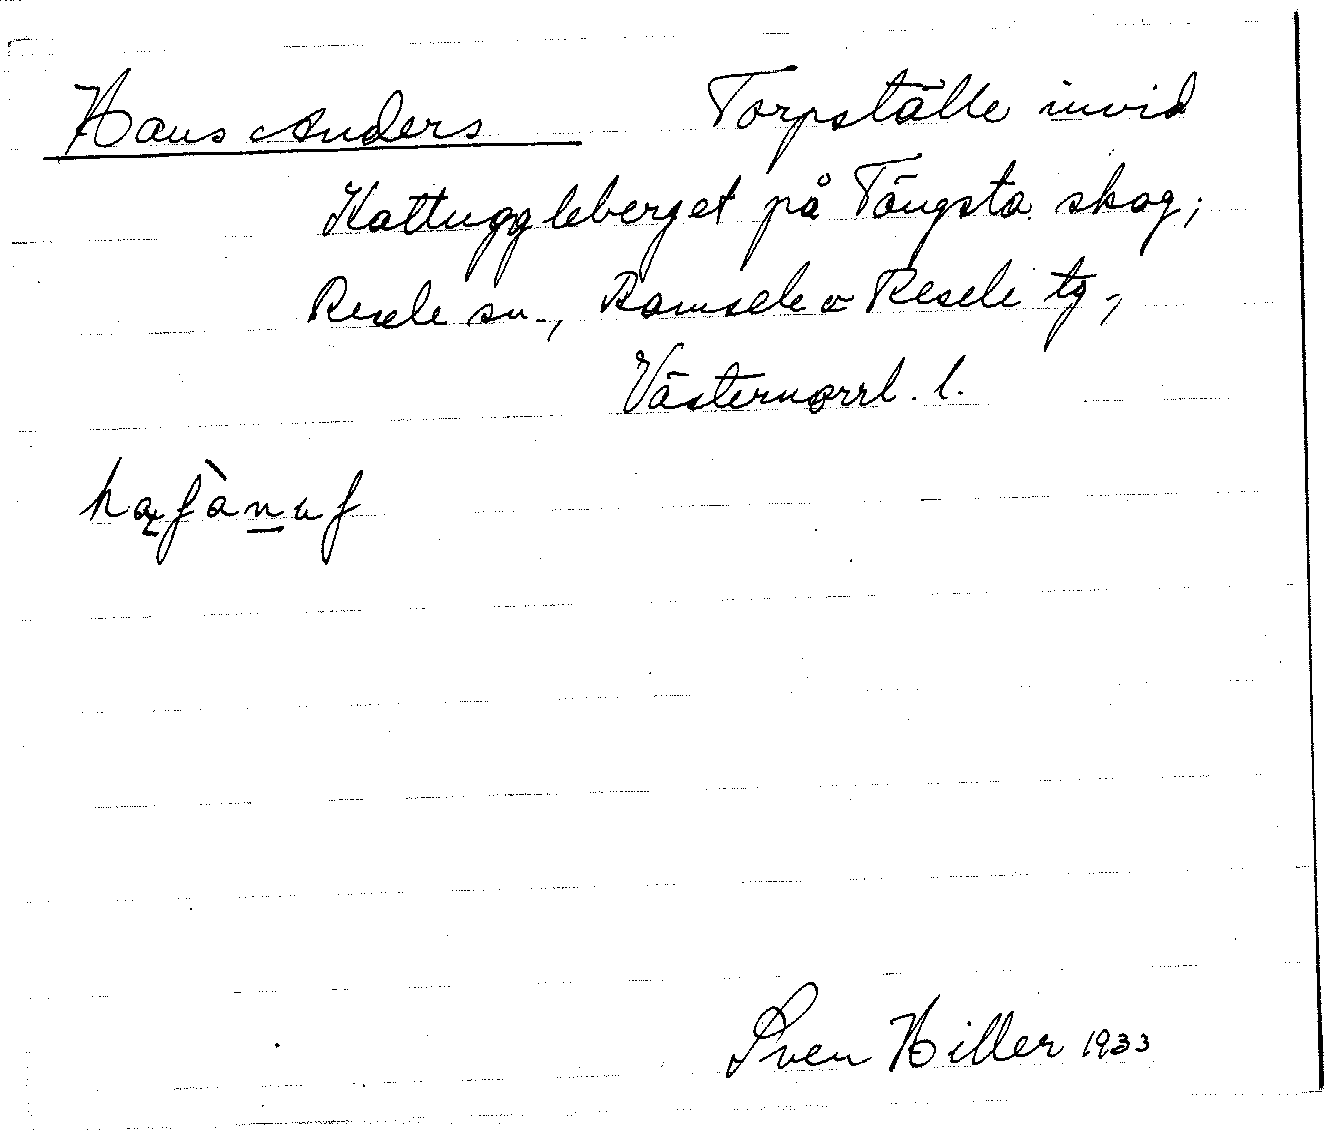 Hans Anders Torpställe invid
Kattuggleberget på Tängsta skog;
Resele sn., Ramsele o Resele tg,
Västernorrl. l.
Sven Hiller 1933